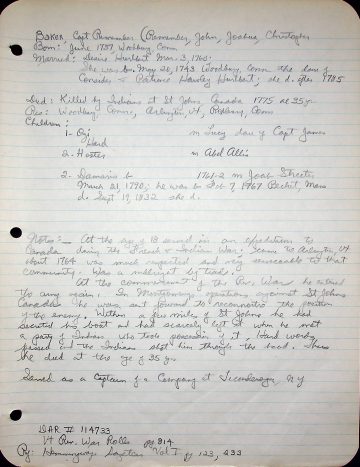 Baker, Capt Remember (Remember, John, Joshua, Christopher
Born: June 1737 Woodbury, Conn
Married: Desire Hurlbut Mar. 3, 1760:
She was b. May 20, 1743 Woodbury, Conn the dau of
Consider & Patience Hawley Hurlbut; she d. after 1785
Died: Killed by Indians at St Johns Canada 1775 ae 35 yr
Res: Woodbury Conn, Arlington, Vt,
Children:
1- Ozi m Lucy dau of Capt James
Hard
2- Hester m Abel Allis
2- Damaris b 1761-2 m Joab Streeter
March 21, 1790; he was b Becket, Mass
d. Sept 19, 1832 she d.
Notes:- At the age of 18 served in an expedition to
Canada during the French & Indian War. Came to Arlington, Vt
about 1764 was much respected and very serviceable to that
community. Was a millwright by trade.
At the commencement of the Rev. War he entered
the army again. In Montgomery's operations against St Johns
Canada he was sent forward to reconnoitre the position
of the enemy. Within a few miles of St Johns he had
secreted his boat and had scarcely left it when he met
a party of Indians who took possession of it. Hard words
passed and the Indians shot him through the head. Thus
he died at the age of 35 yr.
Served as a Captain of a Company at Ticonderoga, NY
DAR # 114733
Vt Rev. War Rolls pg 814
Ry: Hemenways Gazetteer Vol I pg 123, 233